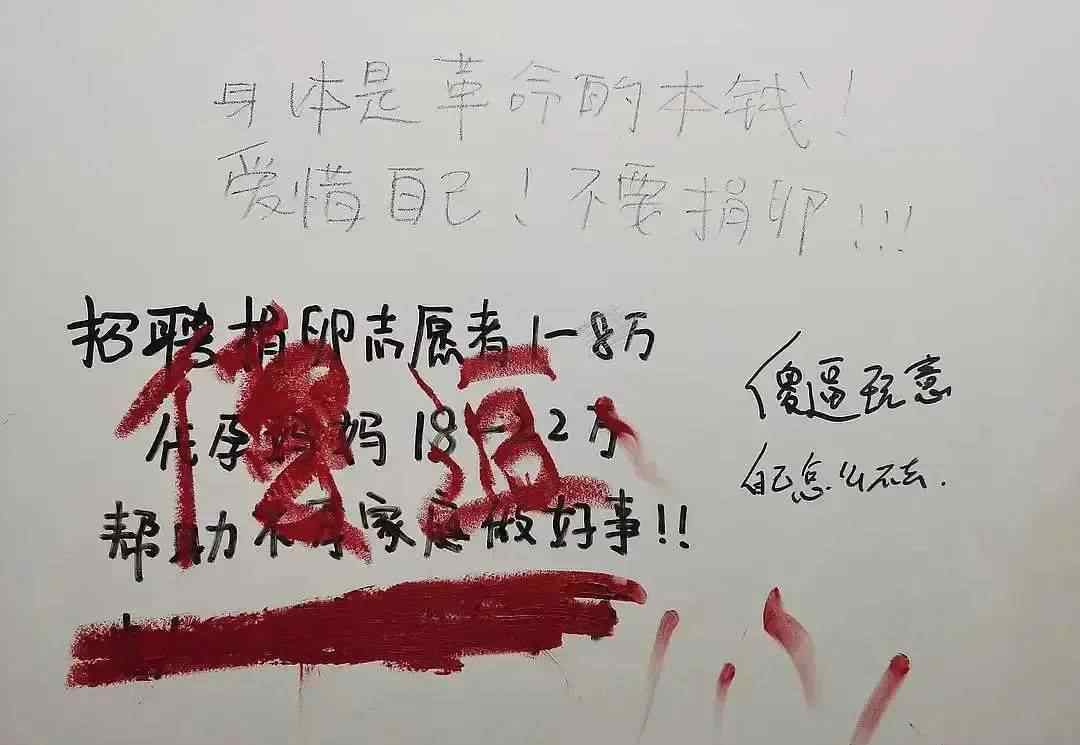 身体是革命的本钱!
爱惜自己!不要捐卵!!!
招聘捐卵志愿者1-8万
代孕妈妈18-22万
帮助不孕家庭做好事!!
傻逼
傻逼玩意
自己怎么不去.